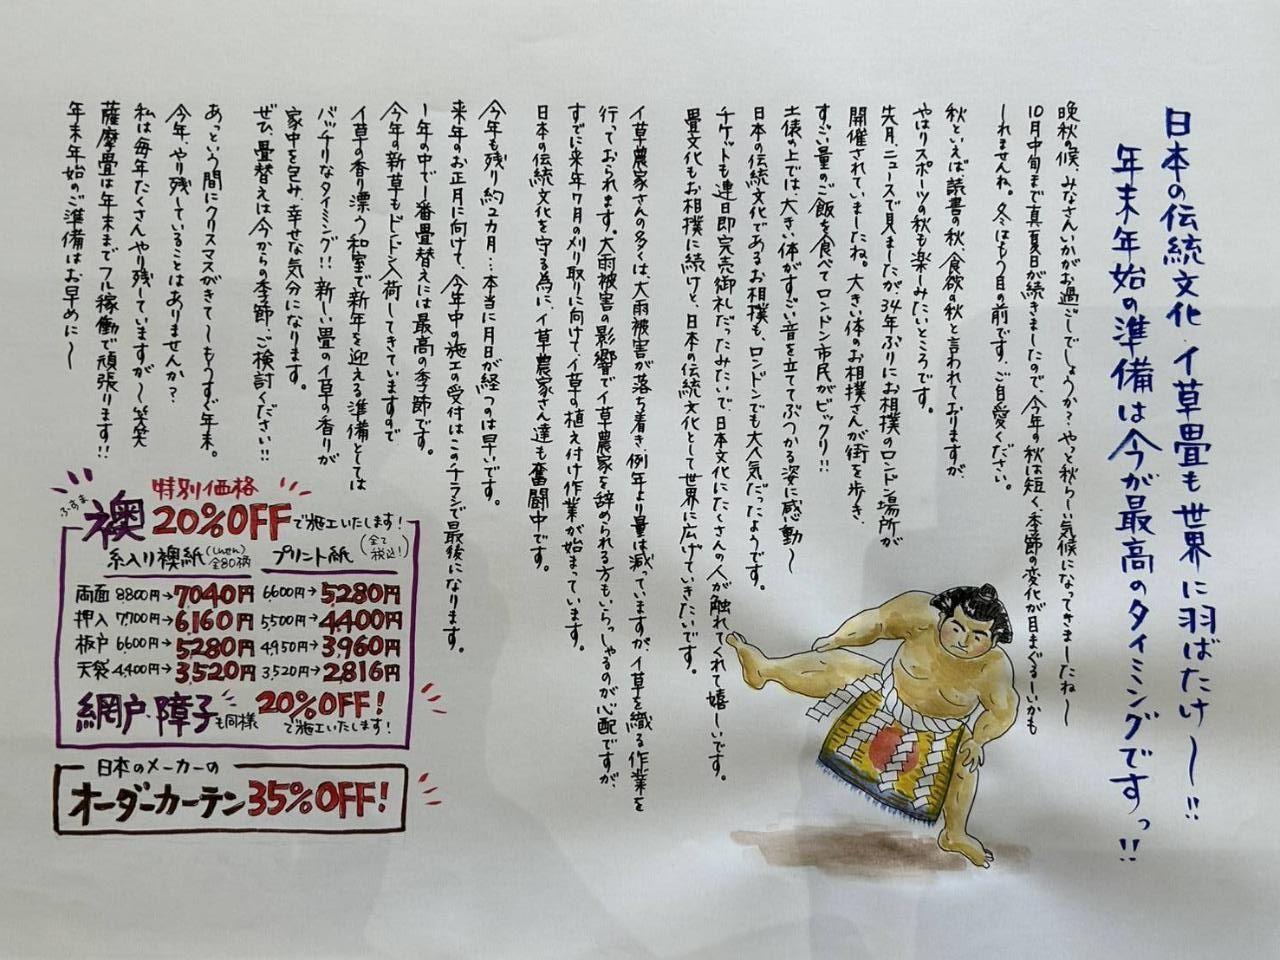 日本の伝統文化 イ草畳も世界に羽ばたけ〜!!
年末年始の準備は今が最高のタイミングですっ!!
晩秋の候、みなさんいかがお過ごしでしょうか?やっと秋らしい気候になってきましたね〜
10月中旬まで真夏日が続きましたので、今年の秋は短く、季節の変化が目まぐるしいかも
しれませんね。冬はもう目の前です、ご自愛ください。
秋といえば読書の秋、食欲の秋と言われておりますが、
やはりスポーツの秋も楽しみたいところです。
先月、ニュースで見ましたが34年ぶりにお相撲のロンドン場所が
開催されていましたね。大きい体のお相撲さんが街を歩き、
すっごい量のご飯を食べてロンドン市民がビックリ!!
土俵の上では、大きい体がすごい音を立ててぶつかる姿に感動〜
日本の伝統文化であるお相撲も、ロンドンでも大人気だったようです。
チケットも連日即完売御礼だったみたいで、日本文化にたくさんの人が触れてくれて嬉しいです。
畳文化もお相撲に続けと、日本の伝統文化として世界に広げていきたいです。
イ草農家さんの多くは、大雨被害が落ち着き、例年より量は減っていますが、イ草を織る作業を
行っておられます。大雨被害の影響でイ草農家を辞められる方もいらっしゃるのが心配ですが、
すでに来年7月の刈り取りに向けて、イ草の植え付け作業が始まっています。
日本の伝統文化を守る為に、イ草農家さん達も奮闘中です。
今年も残り約2カ月…本当に月日が経つのは早いです。
来年のお正月に向けて、今年中の施工の受付はこのチラシで最後になります。
1年の中で1番畳替えには最高の季節です。
今年の新草もドンドン入荷してきていますので
イ草の香り漂う和室で新年を迎える準備としては
バッチリなタイミング!!新しい畳のイ草の香りが
家中を包み、幸せな気分になります。
ぜひ、畳替えは今からの季節、ご検討ください!!
あっという間にクリスマスがきて〜もうすぐ年末。
今年、やり残していることはありませんか?
私は毎年たくさんやり残していますが〜笑笑
薩摩畳は年末までフル稼働で頑張ります!!
年末年始のご準備はお早めに〜
特別価格
ふすま
襖 20%OFFで施工いたします!
糸入り襖紙(しんせん 全80柄) プリント紙(全て税込!)
両面 8,800円→7040円 6,600円→5280円
押入 7,700円→6,160円 5,500円→4,400円
板戸 6600円→5280円 4,950円→3,960円
天袋 4,400円→3,520円 3,520円→2,816円
網戸・障子も同様 20%OFF!で施工いたします!
日本のメーカーの
オーダーカーテン35%OFF!